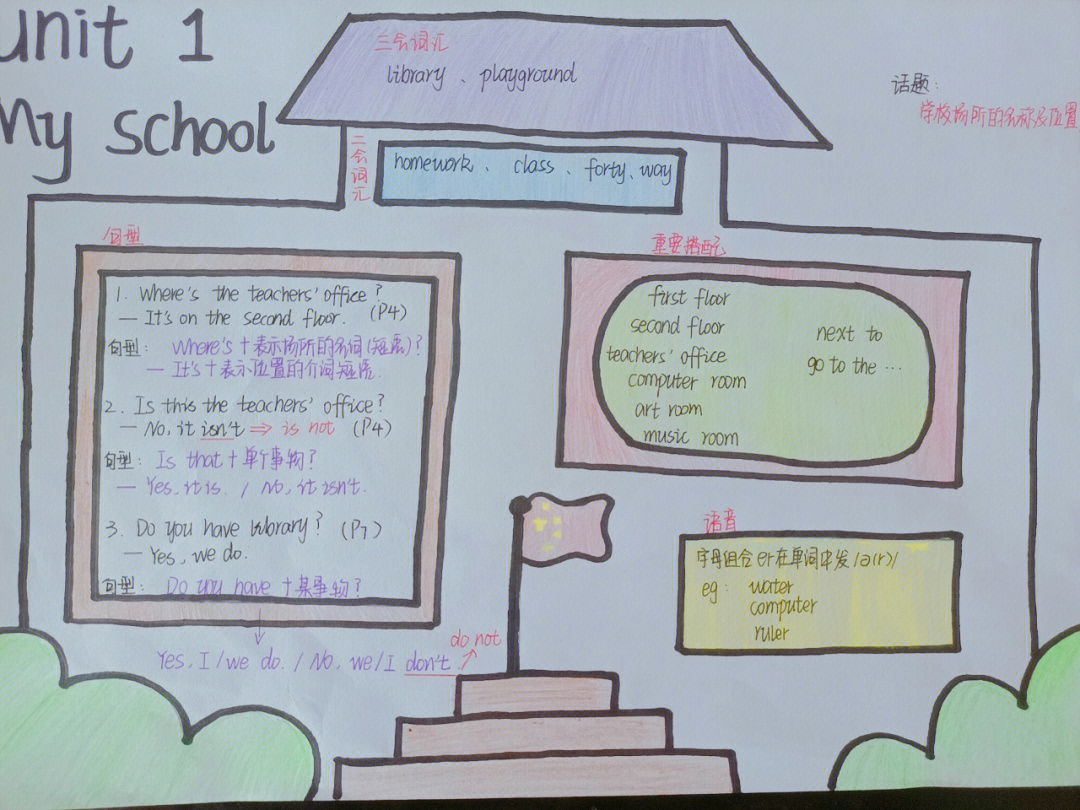 unit 1
My school
三会词汇
library、playground
话题：
学校场所的名称及位置
二会词汇
homework、class、forty、way
句型
1. Where's the teachers' office?
— It's on the second floor. (P4)
句型： Where's+表示场所的名词(短语)?
— It's+表示位置的介词短语.
2. Is this the teachers' office?
— No, it isn't ⇒ is not (P4)
句型: Is that+单个事物?
— Yes, it is. / No, it isn't.
3. Do you have library? (P7)
— Yes, we do.
句型: Do you have +某事物?
Yes, I/we do. / No, we/I don't. do not
重要搭配
first floor
second floor
teachers' office
computer room
art room
music room
next to
go to the ...
语音
字母组合er在单词中发/ə(r)/
eg: water
computer
ruler